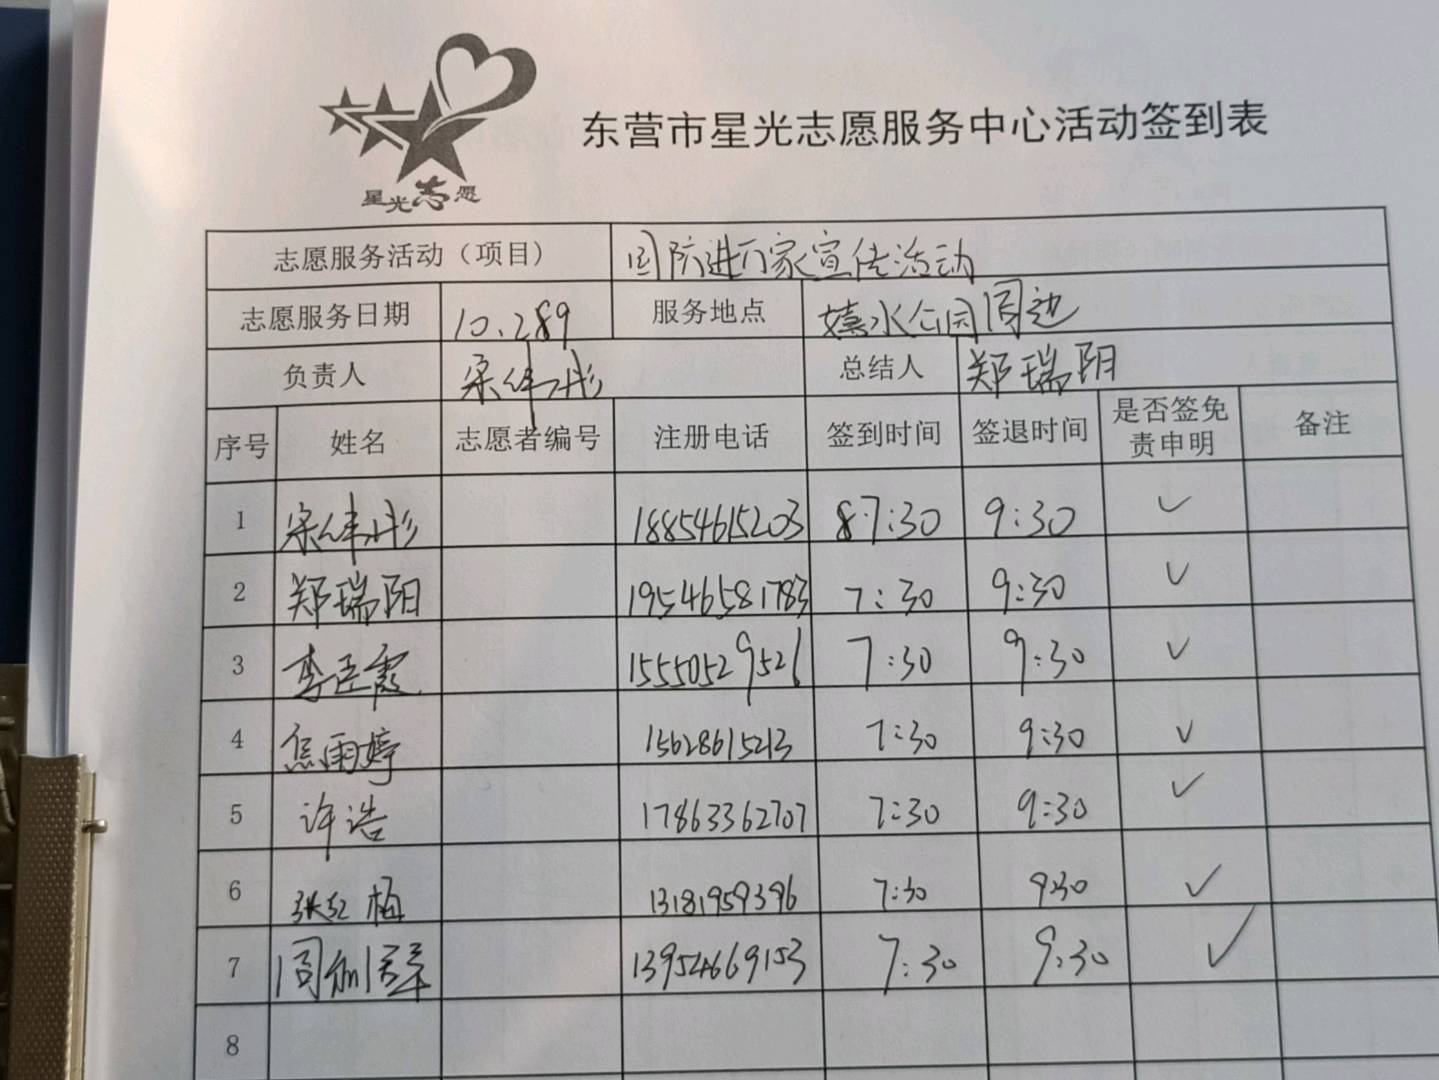 星光志愿
东营市星光志愿服务中心活动签到表
志愿服务活动（项目） 国防进万家宣传活动
志愿服务日期 10.289 服务地点 嬉水公园周边
负责人 宋伟彬 总结人 郑瑞阳
序号 姓名 志愿者编号 注册电话 签到时间 签退时间 是否签免责申明 备注
1 宋伟彬 18854615203 87:30 9:30 ✓
2 郑瑞阳 19546581783 7:30 9:30 ✓
3 李臣霞 15550529526 7:30 9:30 ✓
4 焦雨婷 15628615213 7:30 9:30 ✓
5 许浩 17863362707 7:30 9:30 ✓
6 张红梅 13181959396 7:30 9:30 ✓
7 13954669153 7:30 9:30 ✓
8